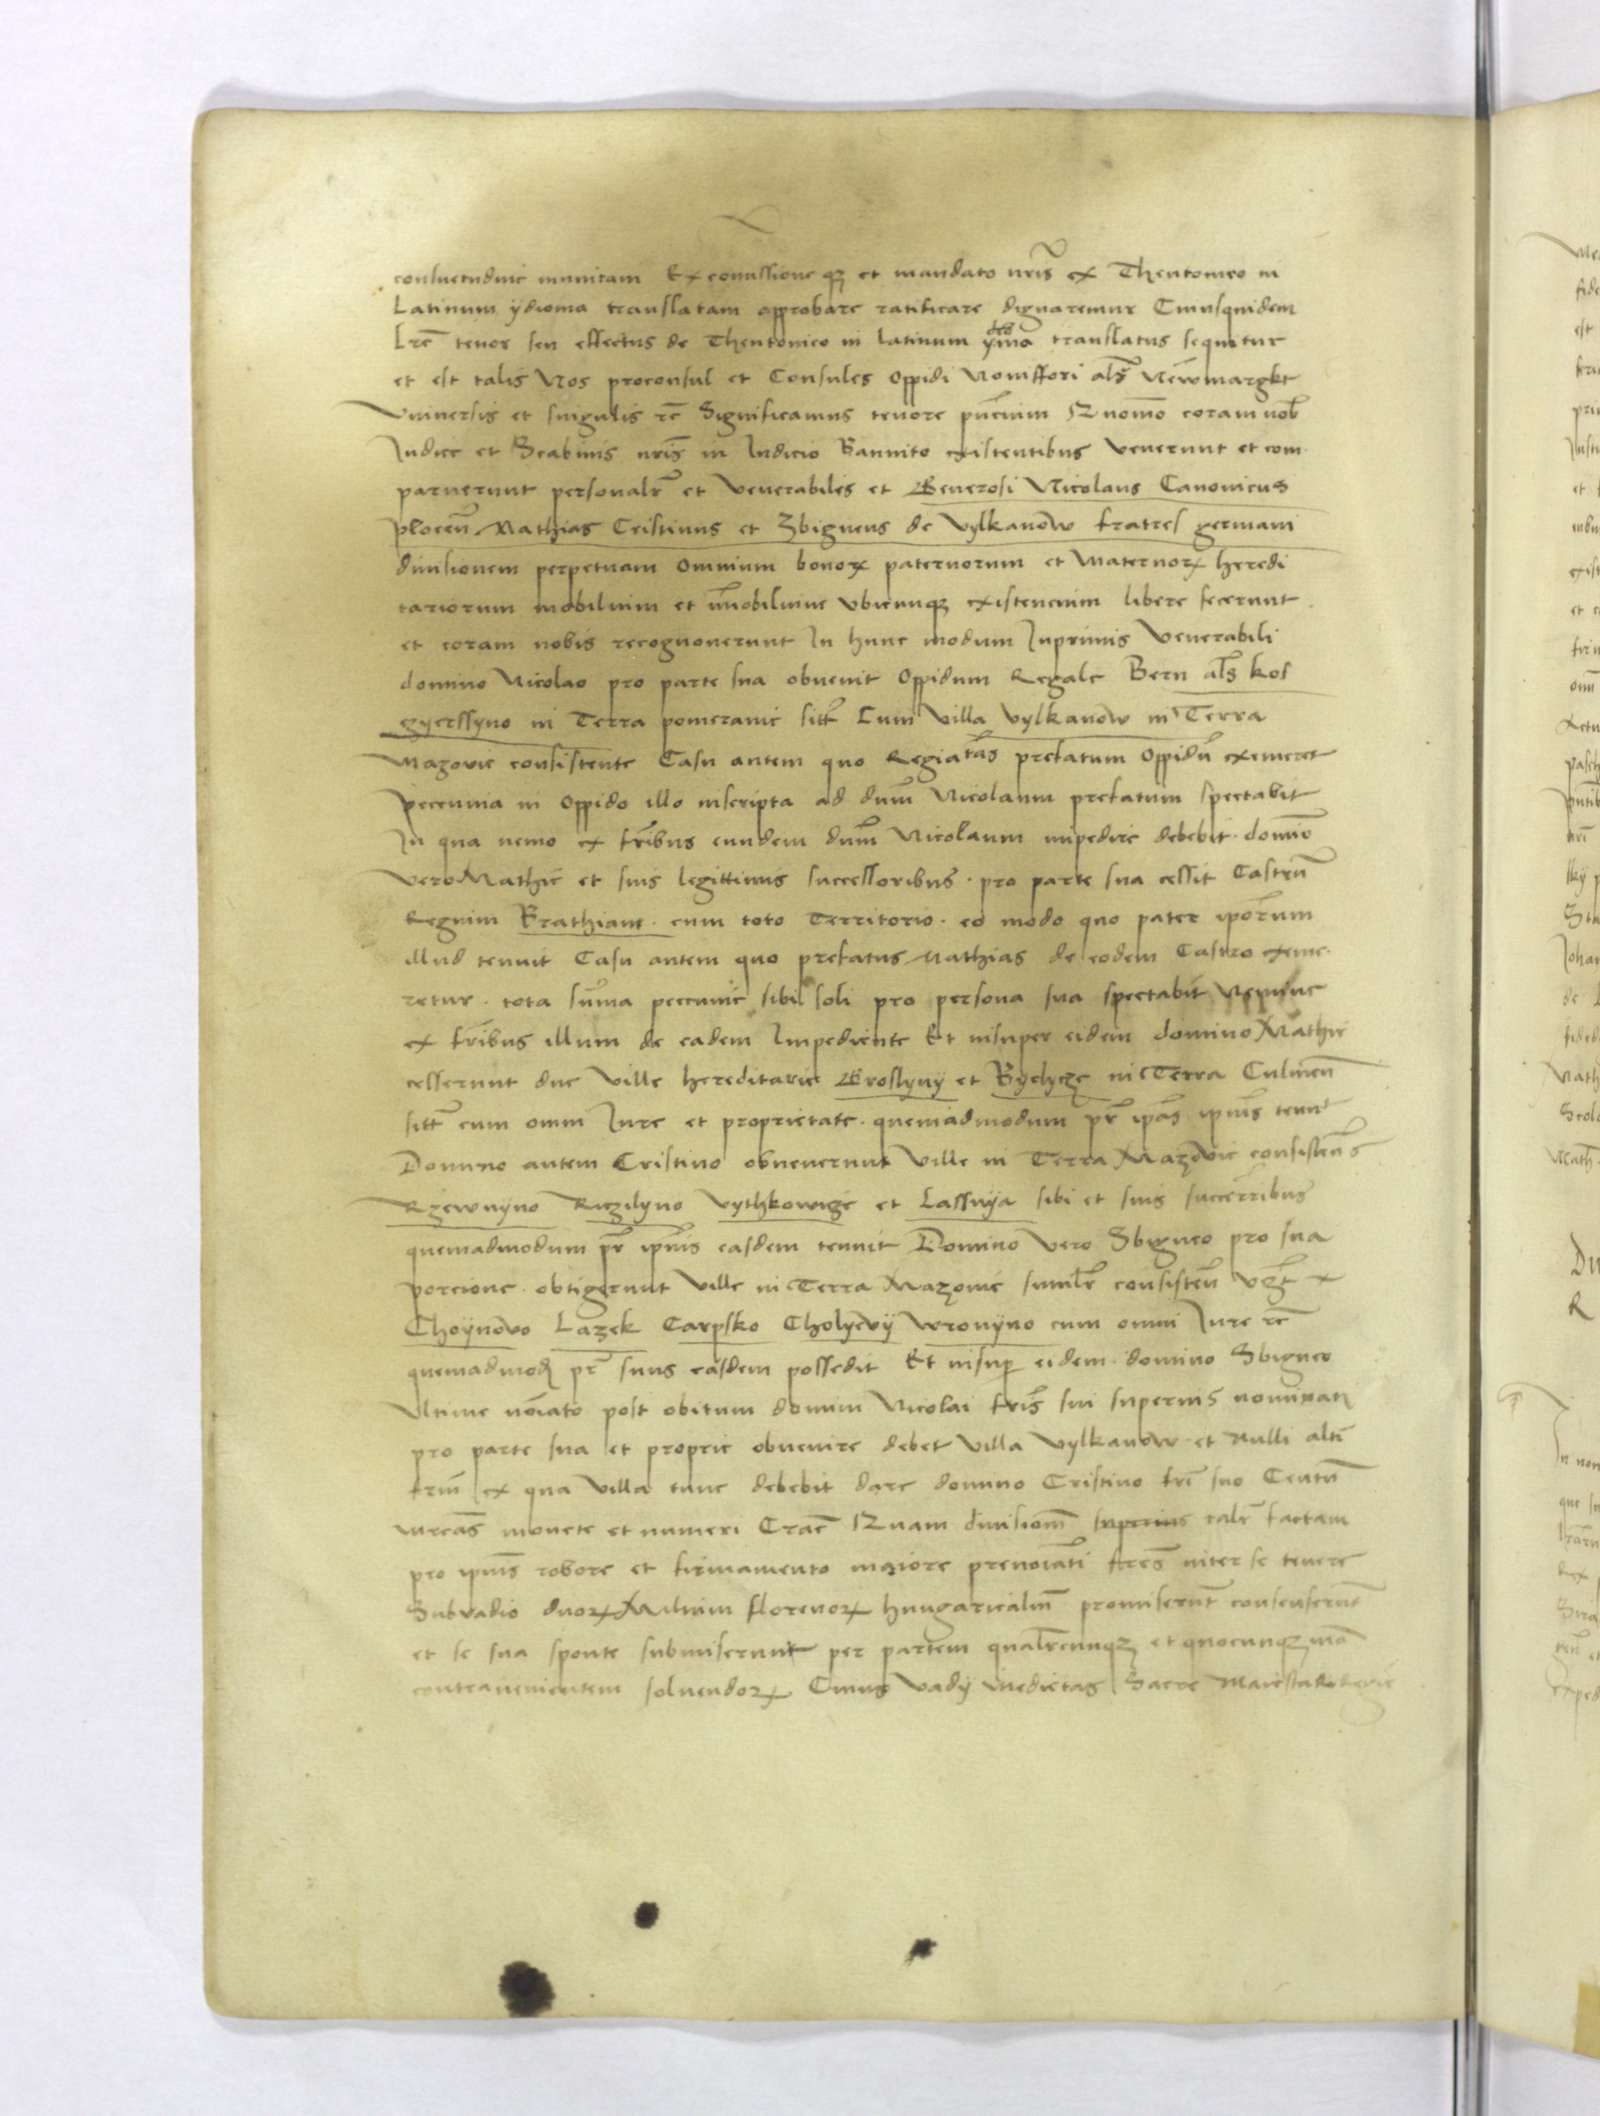 consuetudine munitam Ex comissione qz et mandato nris ex Thentonico in
Latinum ydioma translatam approbare ratificare dignaremur Cuiusquidem
Lre tenor seu effectus de Thentonico in latinum ydeoma translatus sequitur
et est talis Nos proconsul et Consules Oppidi Noviffori als Newmargkt
Universis et singulis rc Significamus tenore pncium Quomo coram nob
Iudice et Scabinis nris in Iudicio Bannito existentibus venerunt et com
paruerunt personalr et Venerabiles et Generosi Nicolaus Canonicus
plocen Mathias Cristinus et Zbigneus de Vylkanow fratres germani
divisionem perpetuam omnium bonorz paternorum et Maternorz heredi
tariorum mobilium et immobilium ubicunqz existencium libere fecerunt
et coram nobis recognoverunt In hunc modum Inprimis Venerabili
domino Nicolao pro parte sua obvenit Oppidum Regale Bern als kos
gyerssyno in Terra pomeranie sitt Cum Villa Vylkanow in Terra
Mazovie consistente Casu autem quo Regiatas prefatum Oppidu exemeret
peccunia in Oppido illo inscripta ad dum Nicolaum prefatum spectabit
In qua nemo ex fribus eundem dum Nicolaum impedire debebit domio
vero Mathie et suis legittimis successoribus pro parte sua cessit Castru
Regium Brathiane cum toto Territorio eo modo quo pater iporum
illud tenuit Casu autem quo prefatus Mathias de eodem Castro exime
retur tota suma peccunie sibi soli pro persona sua spectabit Nemine
ex fribus illum de eadem Impediente Et insuper eidem domino Mathie
cesserunt due Ville hereditarie Groslyny et Byelycze in Terra Culmen
sitt cum omni Iure et proprietate quemadmodum pr ipas ipius tenuit
Domino autem Cristino obvenerunt Ville in Terra Mazovie consisten
Rzewnyno Ruzilyno Vythkowize et Lassnya sibi et suis succerribus
quemadmodum pr ipius easdem tenuit Domino vero Sbigneo pro sua
porcione obtigerunt Ville in Terra Mazovie similr consisten vzt
Choynowo Lazek Carpsko Cholyewy Wronyno cum omni Iure rc
quemadmod pr suus easdem possedit Et insup eidem domino Sbigneo
Ultime noiato post obitum domini Nicolai fris sui superius nominati
pro parte sua et proprie obvenire debet Villa Vylkanow et Nulli alti
frm ex qua Villa tunc debebit dare domino Cristino fri suo Centu
mrcas monete et numeri Crac Quam divisiom superius talr factam
pro ipius robore et firmamento maiore prenoiati fres inter se tenere
Subvadio duorz Milium florenorz hungaricalium promiserut consenserut
et se sua sponte submiserunt per partem qualrcunqz et quocunqz mo
contravenientem solvendorz Cuius Vady Medietas Sacre Maiestati Regie